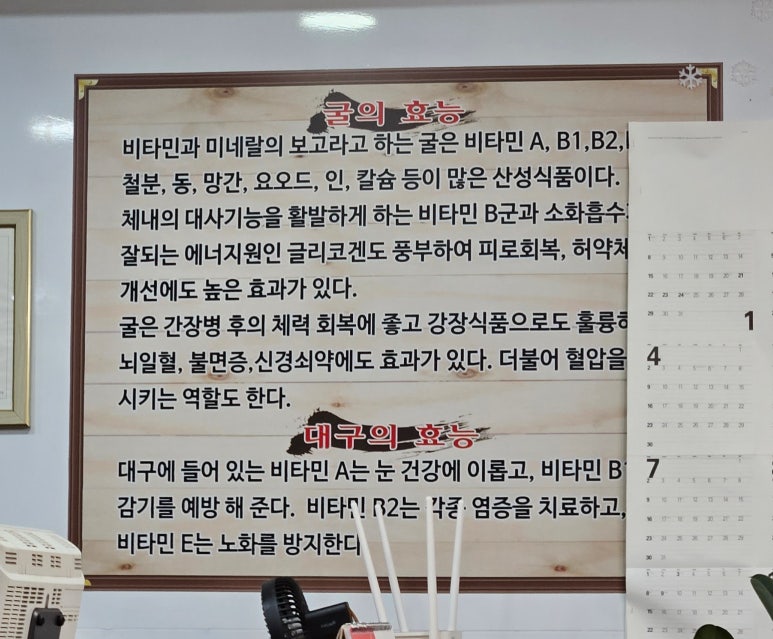 굴의 효능
비타민과 미네랄의 보고라고 하는 굴은 비타민 A, B1,B2,
철분, 동, 망간, 요오드, 인, 칼슘 등이 많은 산성식품이다.
체내의 대사기능을 활발하게 하는 비타민 B군과 소화흡수
잘되는 에너지원인 글리코겐도 풍부하여 피로회복, 허약체
개선에도 높은 효과가 있다.
굴은 간장병 후의 체력 회복에 좋고 강장식품으로도 훌륭하
뇌일혈, 불면증,신경쇠약에도 효과가 있다. 더불어 혈압을
시키는 역할도 한다.
대구의 효능
대구에 들어 있는 비타민 A는 눈 건강에 이롭고, 비타민 B1
감기를 예방 해 준다. 비타민 B2는 각종 염증을 치료하고,
비타민 E는 노화를 방지한다
1
4
7